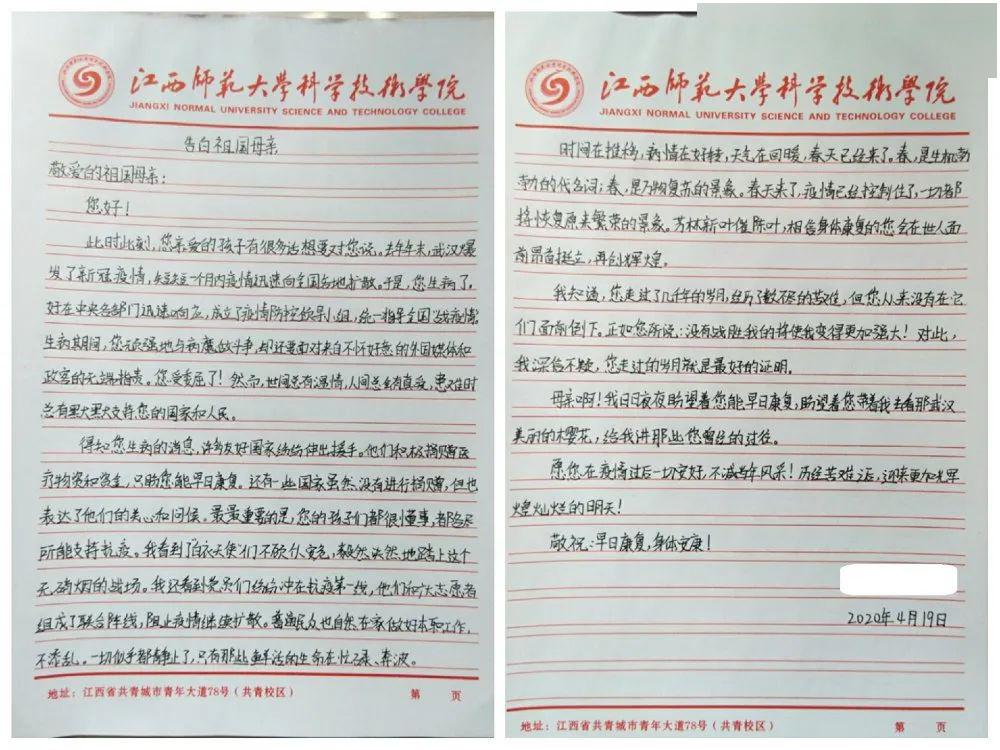 江西师范大学科学技术学院
JIANGXI NORMAL UNIVERSITY SCIENCE AND TECHNOLOGY COLLEGE
告白祖国母亲
敬爱的祖国母亲：
您好！
此时此刻，您亲爱的孩子有很多话想要对您说。去年年末，武汉爆
发了新冠疫情，短短一个月内疫情迅速向全国各地扩散。于是，您生病了，
好在中央各部门迅速响应，成立了疫情防控领导小组，统一指导全国战疫情。
生病期间，您顽强地与病魔做斗争，却还要面对来自不怀好意的外国媒体和
政客的无端指责。您受委屈了！然而，世间总有温情，人间总会有真爱，患难时
总有默默支持您的国家和人民。
得知您生病的消息，许多友好国家纷纷伸出援手。他们积极捐赠医
疗物资和资金，只盼您能早日康复。还有一些国家虽然没有进行捐赠，但也
表达了他们的关心和问候。最最重要的是，您的孩子们都很懂事，都各尽
所能支持抗疫。我看到了“白衣天使”们不顾个人安危，毅然决然地踏上这个
无硝烟的战场。我还看到党员们纷纷冲在抗疫第一线，他们和广大志愿者
组成了联合阵线，阻止疫情继续扩散。普通民众也自觉在家做好本职工作，
不添乱。一切似乎都静止了，只有那些鲜活的生命在忙碌、奔波。
地址：江西省共青城市青年大道78号（共青校区） 第 页
江西师范大学科学技术学院
JIANGXI NORMAL UNIVERSITY SCIENCE AND TECHNOLOGY COLLEGE
时间在推移，病情在好转，天气在回暖，春天已经来了。春，是生机勃
勃的代名词；春，是万物复苏的景象。春天来了，疫情已经控制住了，一切都
将恢复原来繁荣的景象。芳林新叶催陈叶，相信身体康复的您会在世人面
前昂首挺立，再创辉煌。
我知道，您走过了几千年的岁月，经历了数不尽的苦难，但您从来没有在它
们面前倒下。正如您所说：没有战胜我的将使我变得更加强大！对此，
我深信不疑，您走过的岁月就是最好的证明。
母亲啊！我日日夜夜盼望着您能早日康复，盼望着您带着我去看那武汉
美丽的樱花，给我讲那些您曾经的过往。
愿您在疫情过后一切安好，不减当年风采！历经苦难之后，迎来更加光辉
煌灿烂的明天！
敬祝：早日康复，身体安康！
2020年4月19日
地址：江西省共青城市青年大道78号（共青校区） 第 页